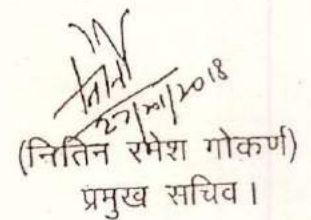 27/01/2018
(नितिन रमेश गोकर्ण)
प्रमुख सचिव।